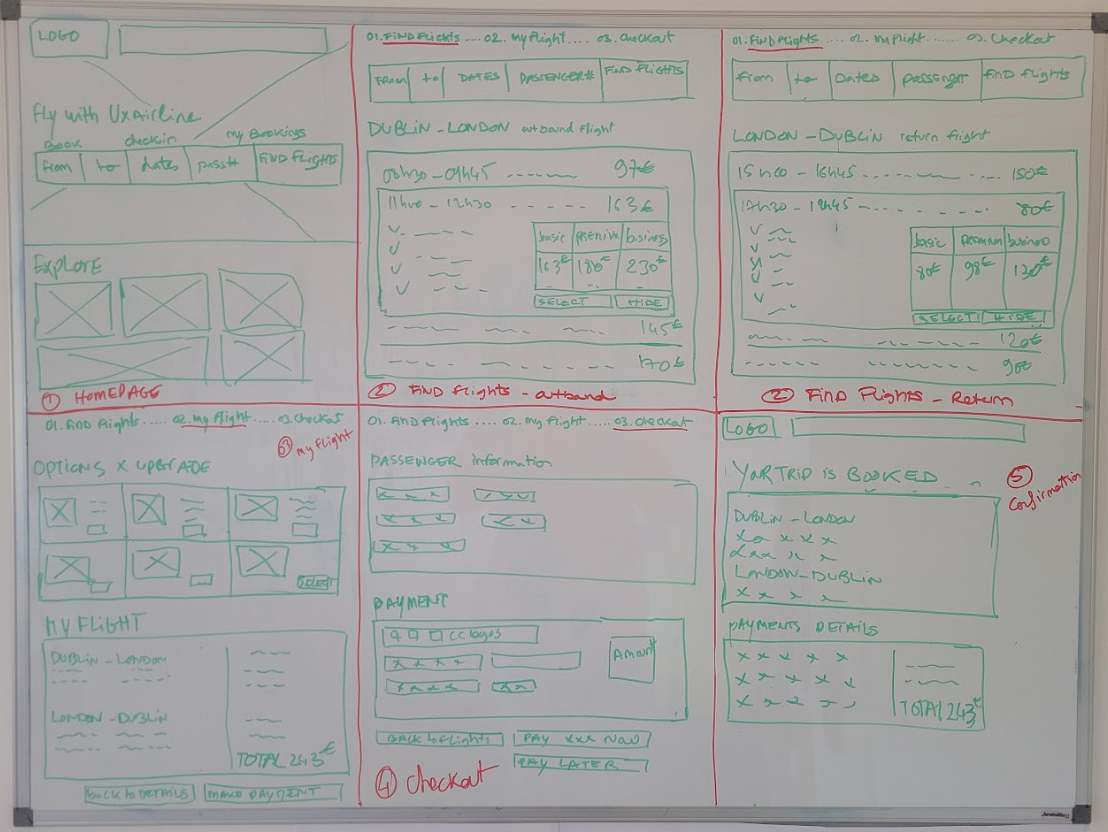 LOGO
Fly with UXAIRLine
Book checkin My Bookings
from to dates pass# FIND FLIGHTS
EXPLORE
① HOMEPAGE
01. FIND FLIGHTS .... 02. My flight .... 03. checkout
FROM to DATES PASSENGER# FIND FLIGHTS
DUBLIN - LONDON outbound flight
97€
11h00 - 12h30 163€
basic premium business
163€ 180€ 230€
SELECT HIDE
145€
170€
② FIND flights - outband
01. FIND flights .. 02. My flight ...... 03. Checkout
from to Dates passenger FIND flights
LONDON - DUBLIN return flight
15h00 - 16h45 150€
80€
basic PREMIUM business
80€ 98€ 130€
SELECT HIDE
120€
90€
② FIND Flights - Return
01. FIND flights .... 02. My flight .... 03. checkout
③ my flight
OPTIONS X UPGRADE
SELECT
MY FLIGHT
DUBLIN - LONDON
LONDON - DUBLIN
TOTAL 243€
BACK to DETAILS MAKE PAYMENT
01. FIND flights .... 02. my flight .... 03. checkout
PASSENGER information
PAYMENT
CC logos
Amount
BACK to flights PAY xxx NOW
PAY LATER
④ checkout
LOGO
YOUR TRIP is BOOKED
⑤
Confirmation
DUBLIN - LONDON
LONDON - DUBLIN
PAYMENTS DETAILS
TOTAL 243€